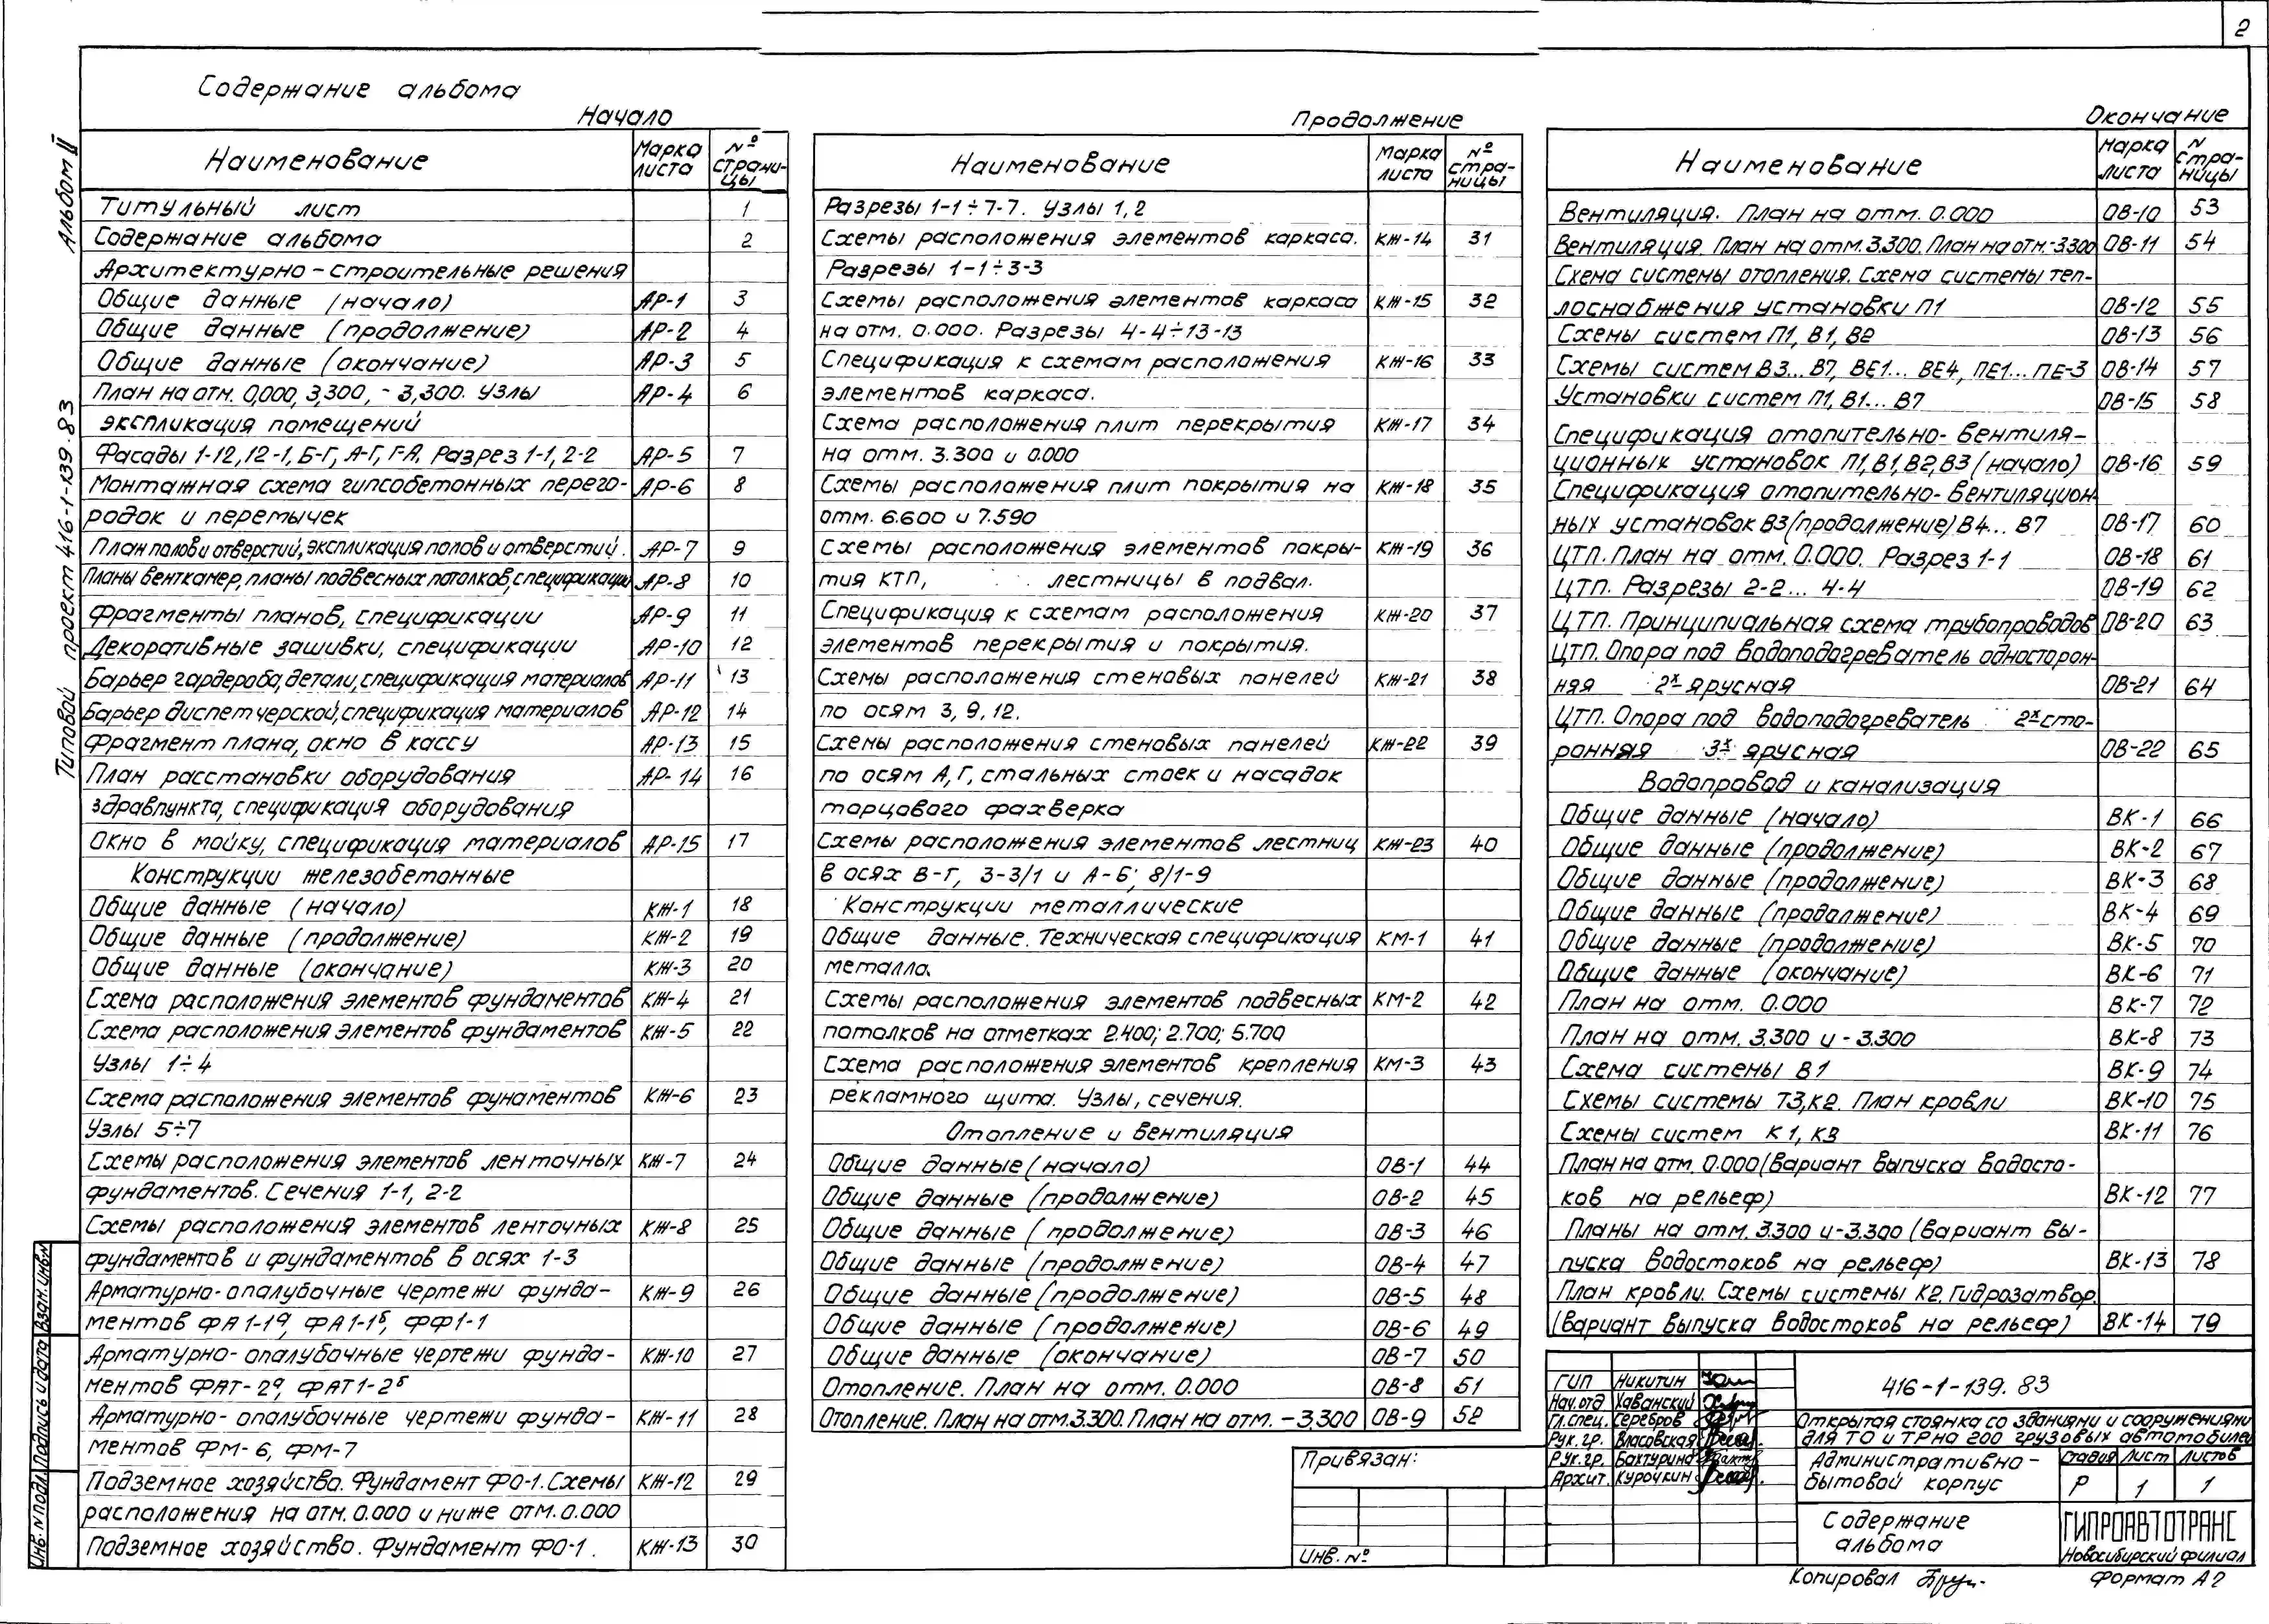 2
Содержание альбома
Начало
Наименование Марка листа № страницы
Титульный лист 1
Содержание альбома 2
Архитектурно-строительные решения
Общие данные (начало) АР-1 3
Общие данные (продолжение) АР-2 4
Общие данные (окончание) АР-3 5
План на отм. 0,000, 3,300, -3,300. Узлы АР-4 6
экспликация помещений
Фасады 1-12, 12-1, Б-Г, А-Г, Г-А. Разрез 1-1, 2-2 АР-5 7
Монтажная схема гипсобетонных перего- АР-6 8
родок и перемычек
План полов и отверстий, экспликация полов и отверстий. АР-7 9
Планы венткамер, планы подвесных потолков, спецификации АР-8 10
Фрагменты планов, спецификации АР-9 11
Декоративные зашивки, спецификации АР-10 12
Барьер гардероба, детали, спецификация материалов АР-11 13
Барьер диспетчерской, спецификация материалов АР-12 14
Фрагмент плана, окно в кассу АР-13 15
План расстановки оборудования АР-14 16
здравпункта, спецификация оборудования
Окно в мойку, спецификация материалов АР-15 17
Конструкции железобетонные
Общие данные (начало) КЖ-1 18
Общие данные (продолжение) КЖ-2 19
Общие данные (окончание) КЖ-3 20
Схема расположения элементов фундаментов КЖ-4 21
Схема расположения элементов фундаментов КЖ-5 22
Узлы 1÷4
Схема расположения элементов фунаментов КЖ-6 23
Узлы 5÷7
Схемы расположения элементов ленточных КЖ-7 24
фундаментов. Сечения 1-1, 2-2
Схемы расположения элементов ленточных КЖ-8 25
фундаментов и фундаментов в осях 1-3
Арматурно-опалубочные чертежи фунда- КЖ-9 26
ментов ФА1-1а, ФА1-1б, ФФ1-1
Арматурно-опалубочные чертежи фунда- КЖ-10 27
ментов ФАТ-2а, ФАТ1-2б
Арматурно-опалубочные чертежи фунда- КЖ-11 28
ментов ФМ-6, ФМ-7
Подземное хозяйство. Фундамент ФО-1. Схемы КЖ-12 29
расположения на отм. 0.000 и ниже отм. 0.000
Подземное хозяйство. Фундамент ФО-1. КЖ-13 30
Продолжение
Наименование Марка листа № страницы
Разрезы 1-1÷7-7. Узлы 1,2
Схемы расположения элементов каркаса. КЖ-14 31
Разрезы 1-1÷3-3
Схемы расположения элементов каркаса КЖ-15 32
на отм. 0.000. Разрезы 4-4÷13-13
Спецификация к схемам расположения КЖ-16 33
элементов каркаса.
Схема расположения плит перекрытия КЖ-17 34
на отм. 3.300 и 0.000
Схемы расположения плит покрытия на КЖ-18 35
отм. 6.600 и 7.590
Схемы расположения элементов покры- КЖ-19 36
тия КТП, лестницы в подвал.
Спецификация к схемам расположения КЖ-20 37
элементов перекрытия и покрытия.
Схемы расположения стеновых панелей КЖ-21 38
по осям 3, 9, 12.
Схемы расположения стеновых панелей КЖ-22 39
по осям А,Г, стальных стоек и насадок
торцового фахверка
Схемы расположения элементов лестниц КЖ-23 40
в осях В-Г, 3-3/1 и А-Б; 8/1-9
Конструкции металлические
Общие данные. Техническая спецификация КМ-1 41
металла.
Схемы расположения элементов подвесных КМ-2 42
потолков на отметках 2.400; 2.700; 5.700
Схема расположения элементов крепления КМ-3 43
рекламного щита. Узлы, сечения.
Отопление и вентиляция
Общие данные (начало) ОВ-1 44
Общие данные (продолжение) ОВ-2 45
Общие данные (продолжение) ОВ-3 46
Общие данные (продолжение) ОВ-4 47
Общие данные (продолжение) ОВ-5 48
Общие данные (продолжение) ОВ-6 49
Общие данные (окончание) ОВ-7 50
Отопление. План на отм. 0.000 ОВ-8 51
Отопление. План на отм. 3.300. План на отм. -3,300 ОВ-9 52
Окончание
Наименование Марка листа N страницы
Вентиляция. План на отм. 0.000 ОВ-10 53
Вентиляция. План на отм. 3.300. План на отм. -3.300 ОВ-11 54
Схема системы отопления. Схема системы теп-
лоснабжения установки П1 ОВ-12 55
Схемы систем П1, В1, В2 ОВ-13 56
Схемы систем В3... В7, ВЕ1... ВЕ4, ПЕ1... ПЕ-3 ОВ-14 57
Установки систем П1, В1... В7 ОВ-15 58
Спецификация отопительно-вентиля-
ционных установок П1, В1, В2, В3 (начало) ОВ-16 59
Спецификация отопительно-вентиляцион-
ных установок В3 (продолжение) В4... В7 ОВ-17 60
ЦТП. План на отм. 0.000. Разрез 1-1 ОВ-18 61
ЦТП. Разрезы 2-2... 4-4 ОВ-19 62
ЦТП. Принципиальная схема трубопроводов ОВ-20 63
ЦТП. Опора под водоподогреватель односторон-
няя 2х ярусная ОВ-21 64
ЦТП. Опора под водоподогреватель 2х сто-
ронняя 3х ярусная ОВ-22 65
Водопровод и канализация
Общие данные (начало) ВК-1 66
Общие данные (продолжение) ВК-2 67
Общие данные (продолжение) ВК-3 68
Общие данные (продолжение) ВК-4 69
Общие данные (продолжение) ВК-5 70
Общие данные (окончание) ВК-6 71
План на отм. 0.000 ВК-7 72
План на отм. 3.300 и -3.300 ВК-8 73
Схема системы В1 ВК-9 74
Схемы системы Т3, К2. План кровли ВК-10 75
Схемы систем К1, К3 ВК-11 76
План на отм. 0.000 (вариант выпуска водосто-
ков на рельеф) ВК-12 77
Планы на отм. 3.300 и -3.300 (вариант вы-
пуска водостоков на рельеф) ВК-13 78
План кровли. Схемы системы К2. Гидрозатвор.
(вариант выпуска водостоков на рельеф) ВК-14 79
Типовой проект 416-1-139.83 Альбом II
Инв. N подл. Подпись и дата Взам. инв. N
Привязан:
Инв. №
ГИП Никитин
Нач. отд Хаванский
Гл. спец. Серебров
Рук. гр. Власовская
Рук. гр. Бахтурина
Архит. Курочкин
416-1-139.83
Открытая стоянка со зданиями и сооружениями
для ТО и ТР на 200 грузовых автомобилей
Административно-
бытовой корпус
Стадия Лист Листов
Р 1 1
Содержание
альбома
ГИПРОАВТОТРАНС
Новосибирский филиал
Копировал
Формат А2